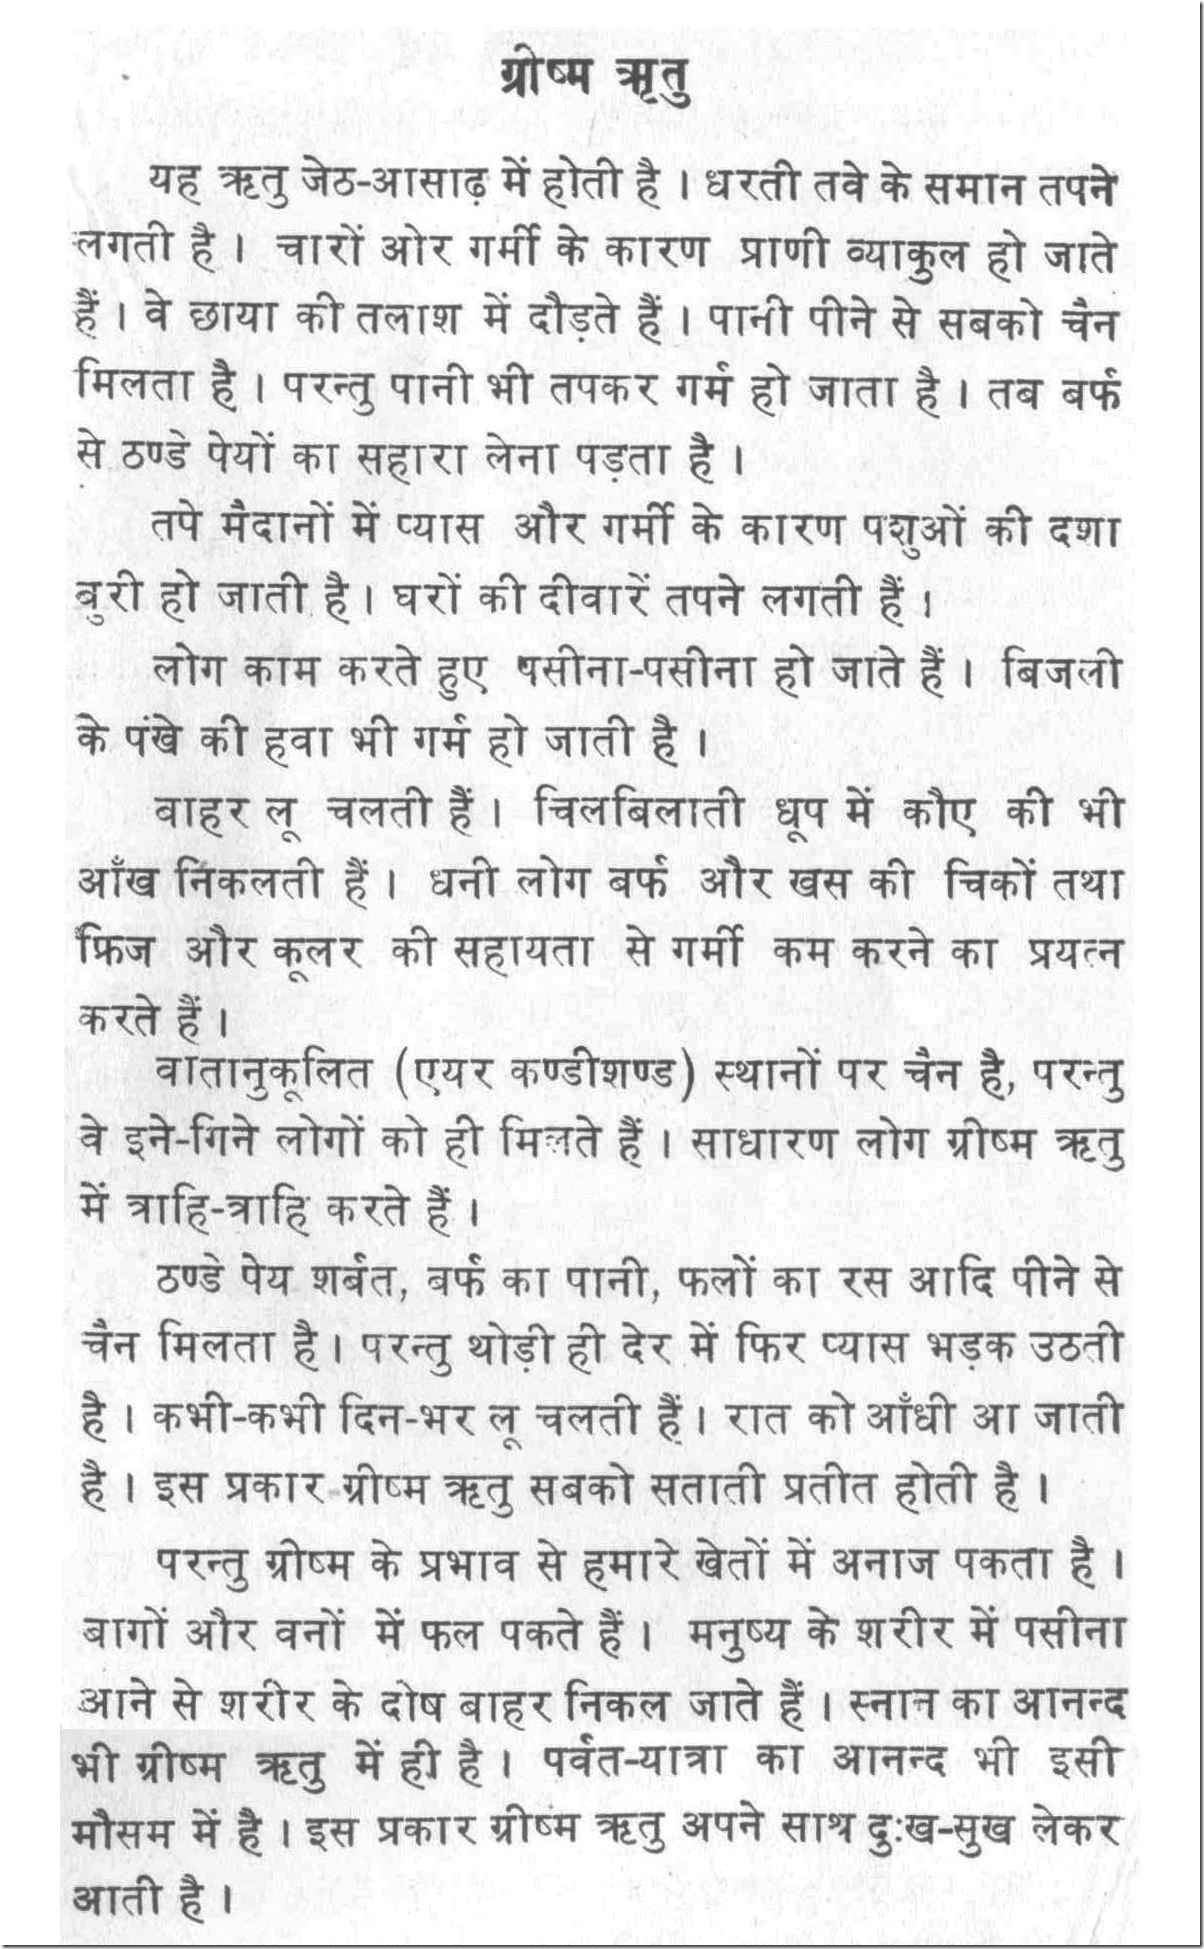 ग्रीष्म ऋतु
यह ऋतु जेठ-आसाढ़ में होती है । धरती तवे के समान तपने
लगती है । चारों ओर गर्मी के कारण प्राणी व्याकुल हो जाते
हैं । वे छाया की तलाश में दौड़ते हैं । पानी पीने से सबको चैन
मिलता है । परन्तु पानी भी तपकर गर्म हो जाता है । तब बर्फ
से ठण्डे पेयों का सहारा लेना पड़ता है ।
तपे मैदानों में प्यास और गर्मी के कारण पशुओं की दशा
बुरी हो जाती है । घरों की दीवारें तपने लगती हैं ।
लोग काम करते हुए पसीना-पसीना हो जाते हैं । बिजली
के पंखे की हवा भी गर्म हो जाती है ।
बाहर लू चलती हैं । चिलबिलाती धूप में कौए की भी
आँख निकलती हैं । धनी लोग बर्फ और खस की चिकों तथा
फ्रिज और कूलर की सहायता से गर्मी कम करने का प्रयत्न
करते हैं ।
वातानुकूलित (एयर कण्डीशण्ड) स्थानों पर चैन है, परन्तु
वे इने-गिने लोगों को ही मिलते हैं । साधारण लोग ग्रीष्म ऋतु
में त्राहि-त्राहि करते हैं ।
ठण्डे पेय शर्बत, बर्फ का पानी, फलों का रस आदि पीने से
चैन मिलता है । परन्तु थोड़ी ही देर में फिर प्यास भड़क उठती
है । कभी-कभी दिन-भर लू चलती हैं । रात को आँधी आ जाती
है । इस प्रकार ग्रीष्म ऋतु सबको सताती प्रतीत होती है ।
परन्तु ग्रीष्म के प्रभाव से हमारे खेतों में अनाज पकता है ।
बागों और वनों में फल पकते हैं । मनुष्य के शरीर में पसीना
आने से शरीर के दोष बाहर निकल जाते हैं । स्नान का आनन्द
भी ग्रीष्म ऋतु में ही है । पर्वत-यात्रा का आनन्द भी इसी
मौसम में है । इस प्रकार ग्रीष्म ऋतु अपने साथ दुःख-सुख लेकर
आती है ।